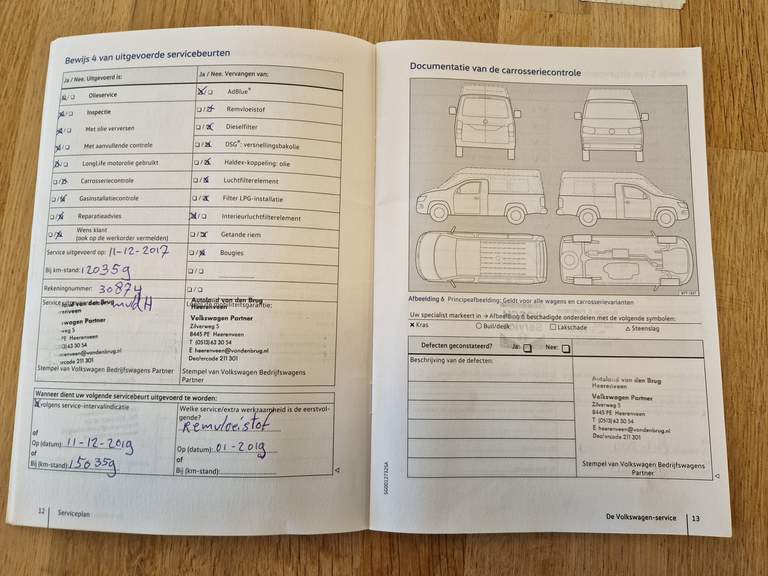 Bewijs 4 van uitgevoerde servicebeurten
Ja / Nee. Uitgevoerd is: Ja / Nee. Vervangen van:
Olieservice AdBlue®
Inspectie Remvloeistof
Met olie verversen Dieselfilter
Met aanvullende controle DSG®: versnellingsbakolie
LongLife motorolie gebruikt Haldex-koppeling: olie
Carrosseriecontrole Luchtfilterelement
Gasinstallatiecontrole Filter LPG-installatie
Reparatieadvies Interieurluchtfilterelement
Wens klant Getande riem
(ook op de werkorder vermelden)
Service uitgevoerd op: 11-12-2017 Bougies
Bij km-stand: 120359
Rekeningnummer: 30874
Autoland van den Brug
Heerenveen
Volkswagen Partner
Zilverweg 5
8445 PE Heerenveen
T (0513) 63 30 54
E heerenveen@vandenbrug.nl
Dealercode 211 301
Stempel van Volkswagen Bedrijfswagens Partner Stempel van Volkswagen Bedrijfswagens
Partner
Wanneer dient uw volgende servicebeurt uitgevoerd te worden:
volgens service-intervalindicatie Welke service/extra werkzaamheid is de eerstvol-
gende?
Remvloeistof
of
Op (datum): 11-12-2019 Op (datum): 01-2019
of of
Bij (km-stand): 150359 Bij (km-stand):
12 Serviceplan
Documentatie van de carrosseriecontrole
Afbeelding 6 Principeafbeelding: Geldt voor alle wagens en carrosserievarianten
Uw specialist markeert in → Afbeelding 6 beschadigde onderdelen met de volgende symbolen:
X Kras O Buil/deuk □ Lakschade △ Steenslag
Defecten geconstateerd? Ja: Nee:
Beschrijving van de defecten:
Autoland van den Brug
Heerenveen
Volkswagen Partner
Zilverweg 5
8445 PE Heerenveen
T (0513) 63 30 54
E heerenveen@vandenbrug.nl
Dealercode 211 301
Stempel van Volkswagen Bedrijfswagens
Partner
De Volkswagen-service 13